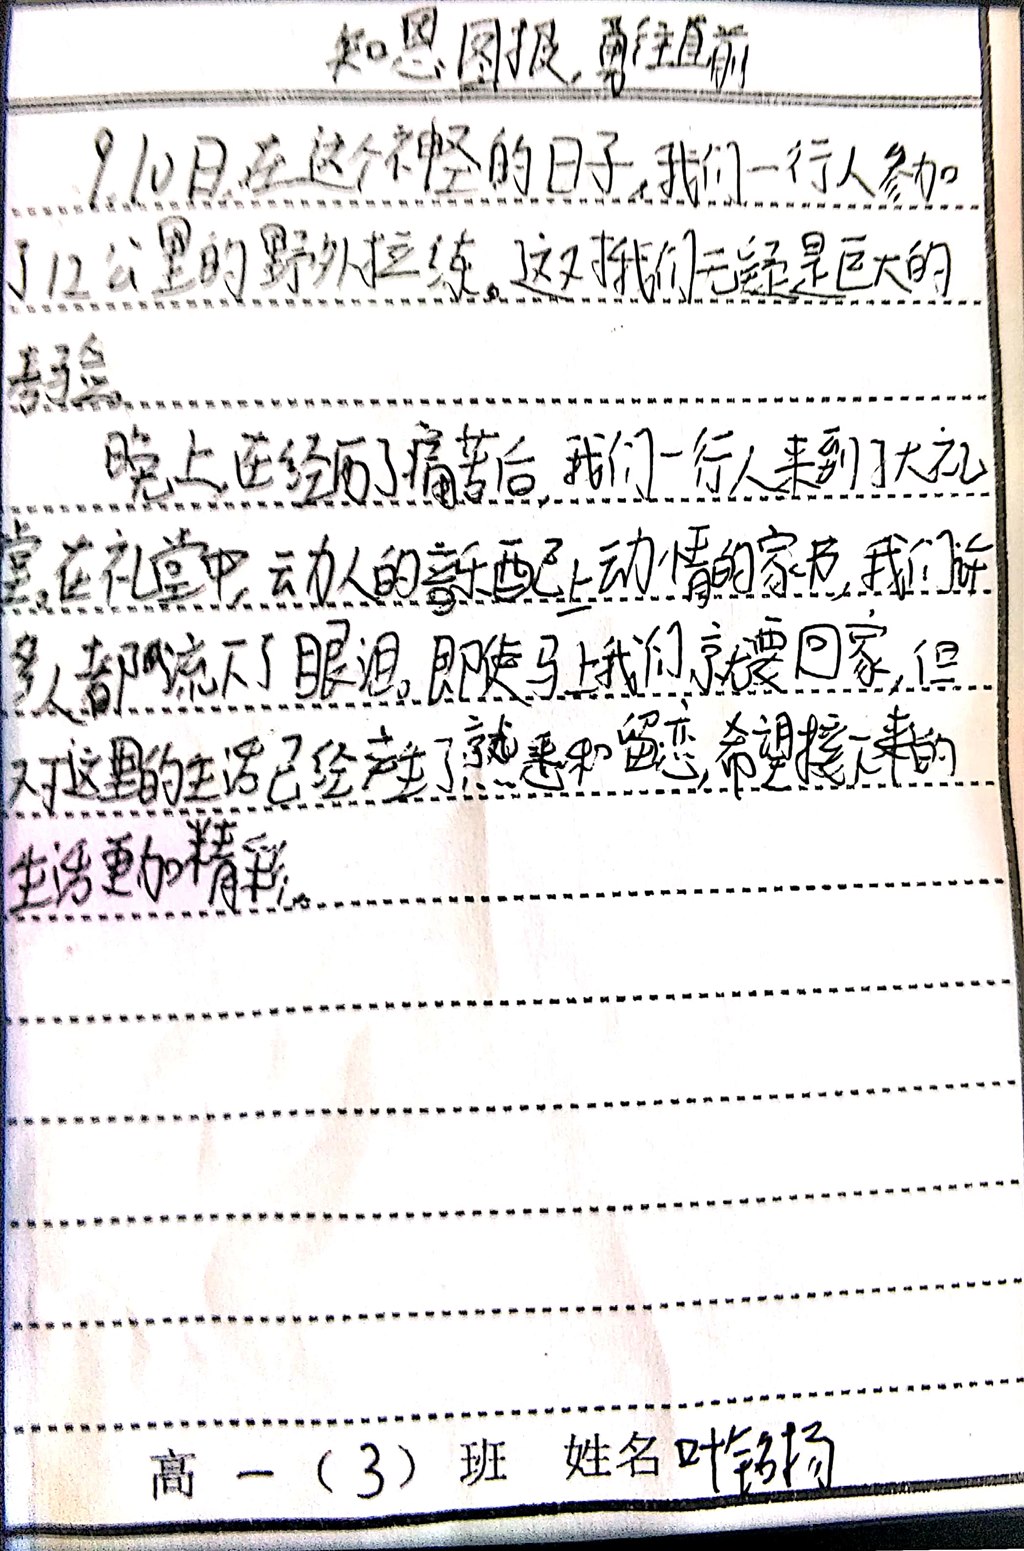 知恩图报,勇往直前
9.10日,在这个神怪的日子,我们一行人参加
了12公里的野外拉练。这对我们无疑是巨大的
考验。
晚上,在经历了痛苦后,我们一行人来到了大礼
堂。在礼堂中,动人的音乐配上动情的家书,我们许
多人都流下了眼泪。即使马上我们就要回家,但
对这里的生活已经产生了熟悉和留恋,希望接下来的
生活更加精彩。
高一(3)班 姓名 叶铭扬